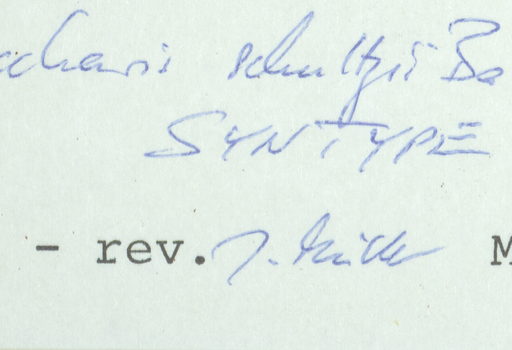 ccharis schultzii Ba
SYNTYPE
- rev. J. Müller M